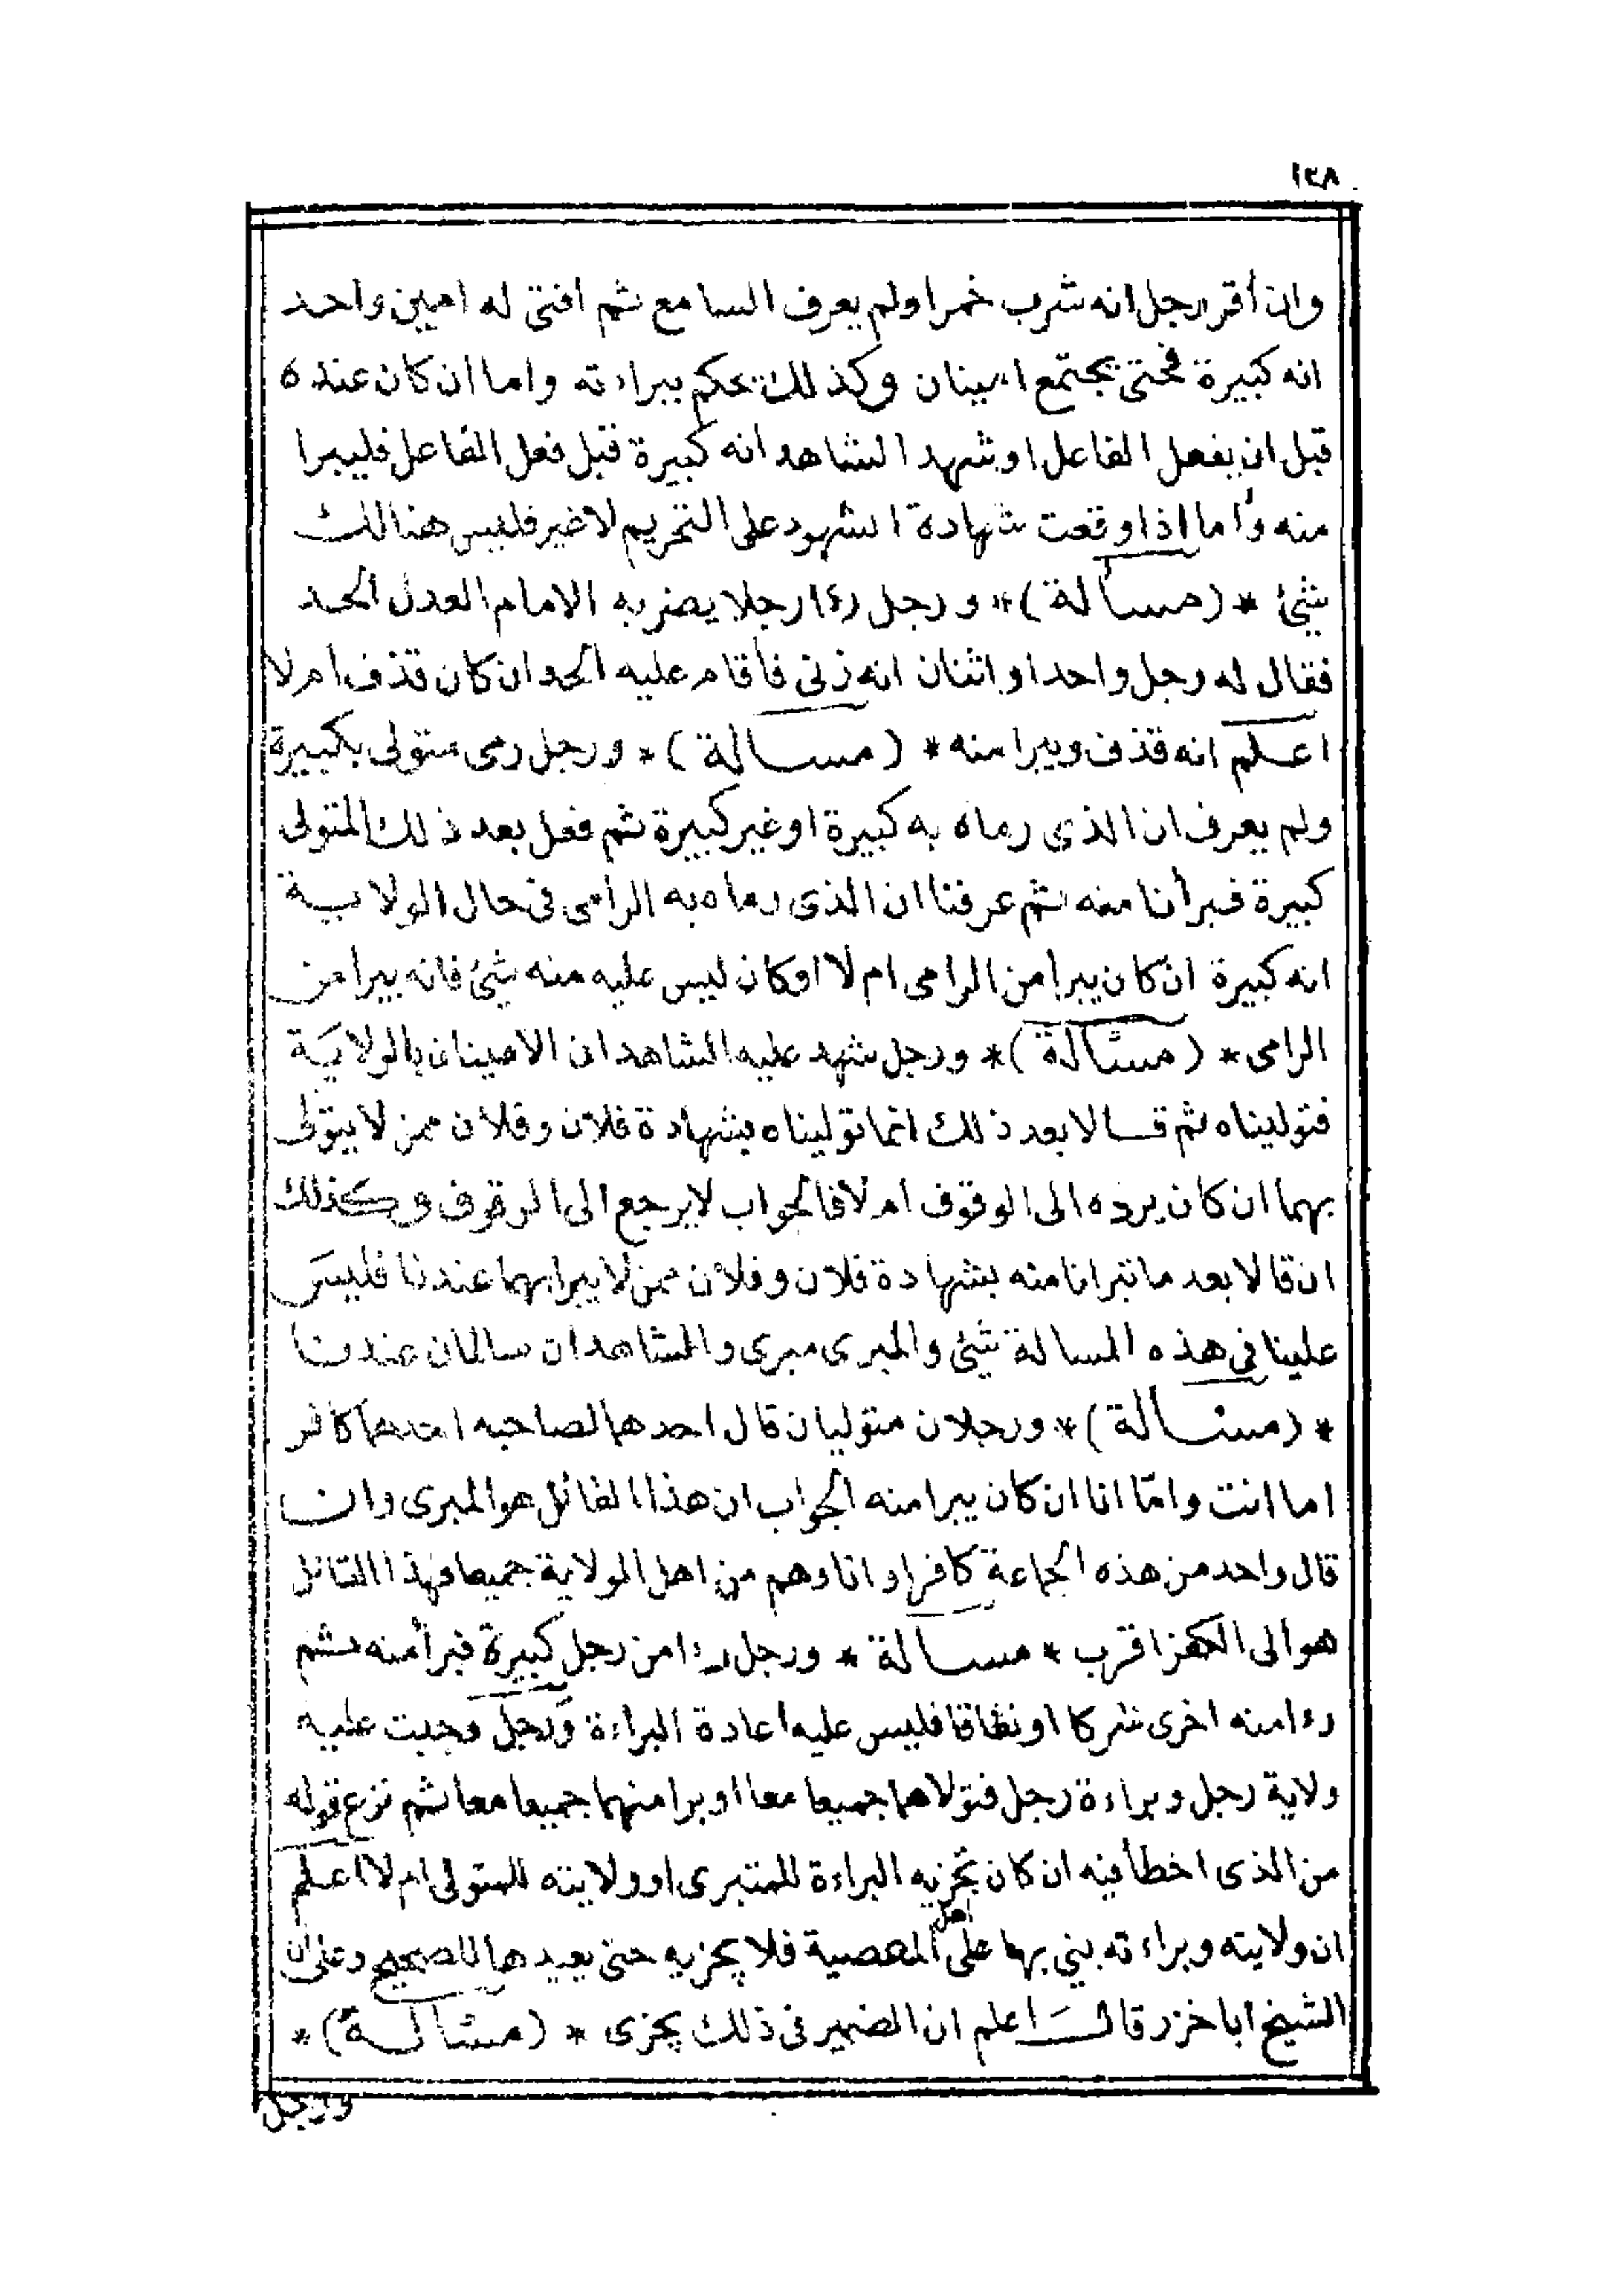 ١٣٨
وان أقر رجل انه شرب خمرا ولم يعرف السامع ثم افتى له امين واحد
انه كبيرة فحتى يجتمع امينان وكذلك يحكم ببراءته واما ان كان عنده
قبل ان يفعل الفاعل او شهد الشاهد انه كبيرة قبل فعل الفاعل فليبرا
منه وأما اذا وقعت شهادة الشهود على التحريم لا غير فليس هنالك
شئ * (مسألة) * ورجل رءا رجلا يضربه الامام العدل الحد
فقال له رجل واحد او اثنان انه زنى فأقام عليه الحد ان كان قذف أم لا
اعلم انه قذف ويبرا منه * (مسالة) * ورجل رمى متولى بكبيرة
ولم يعرف ان الذى رماه به كبيرة او غير كبيرة ثم فعل بعد ذلك المتولى
كبيرة فبرأنا منه ثم عرفنا ان الذى رماه به الرامى فى حال الولاية
انه كبيرة ان كان يبرا من الرامى ام لا او كان ليس عليه منه شئ فانه يبرا من
الرامى * (مسئالة) * ورجل شهد عليه الشاهدان الامينان بالولاية
فتوليناه ثم قالا بعد ذلك انما توليناه بشهادة فلان وفلان ممن لا يتولى
بهما ان كان يرده الى الوقوف ام لا فالجواب لا يرجع الى الوقوف وكذلك
ان قالا بعد ما تبرانا منه بشهادة فلان وفلان ممن لا يبرا بهما عندنا فليس
علينا فى هذه المسالة شئ والمبرى مبرى والشاهدان سالمان عندنا
* (مسئالة) * ورجلان متوليان قال احدهما لصاحبه احدهما كافر
اما انت وامّا انا ان كان يبرا منه الجواب ان هذا القائل هو المبرى وان
قال واحد من هذه الجماعة كافر او انا وهم من اهل الولاية جميعا فهذا القائل
هو الى الكفر اقرب * مسالة * ورجل رءا من رجل كبيرة فبرأ منه ثم
رءا منه اخرى شركا او نفاقا فليس عليه اعادة البراءة ورجل وجبت عليه
ولاية رجل وبراءة رجل فتولاهما جميعا معا او برا منهما جميعا معا ثم نزع قوله
من الذى اخطأ فيه ان كان تجزيه البراءة للمتبرى او ولايته للمتولى ام لا اعلم
ان ولايته وبراءته بني بها على اهل المعصية فلا يجزيه حتى يعيدها للصحيح وعن ان
الشيخ ابا خزر قال اعلم ان الضمير فى ذلك يجزى * (مسئالة) *
ورجل